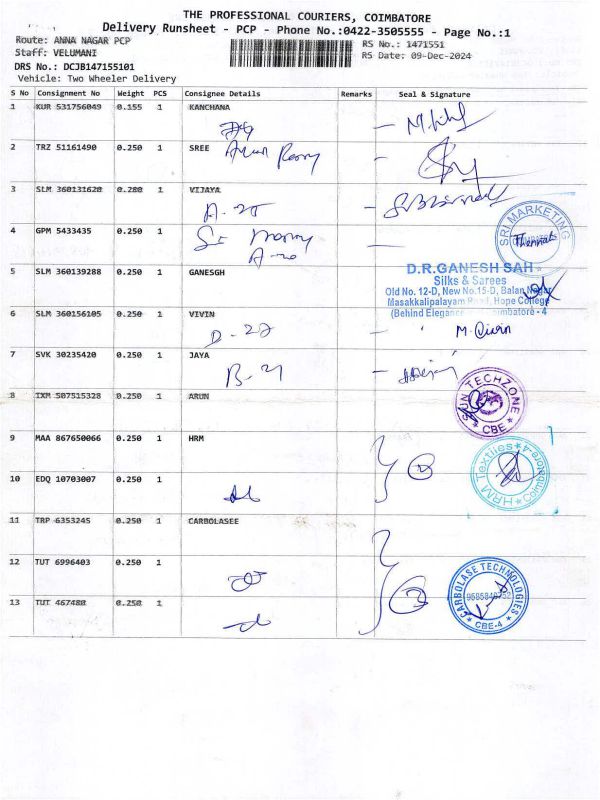 THE PROFESSIONAL COURIERS, COIMBATORE
Delivery Runsheet - PCP - Phone No.:0422-3505555 - Page No.:1
Route: ANNA NAGAR PCP RS No.: 1471551
Staff: VELUMANI RS Date: 09-Dec-2024
DRS No.: DCJB147155101
Vehicle: Two Wheeler Delivery
S No Consignment No Weight PCS Consignee Details Remarks Seal & Signature
1 KUR 531756049 0.155 1 KANCHANA
2 TRZ 51161490 0.250 1 SREE
3 SLM 360131620 0.200 1 VIJAYA
A-25
SRI MARKETING
4 GPM 5433435 0.250 1
5 SLM 360139288 0.250 1 GANESGH
D.R.GANESH SAH
Silks & Sarees
Old No. 12-D, New No.15-D, Balan Nagar
Masakkalipalayam Road, Hope College
(Behind Elegance Coimbatore - 4
6 SLM 360156105 0.250 1 VIVIN
D-22 M.
7 SVK 30235420 0.250 1 JAYA
B-21
SUN TECHZONE
CBE
8 IXM 507515328 0.250 1 ARUN
9 MAA 867650066 0.250 1 HRM
HRM Textiles
Coimbatore-4
10 EDQ 10703007 0.250 1
2
11 TRP 6353245 0.250 1 CARBOLASEE
12 TUT 6996403 0.250 1
CARBOLASE TECHNOLOGIES
CBE-4
13 TUT 467480 0.250 1